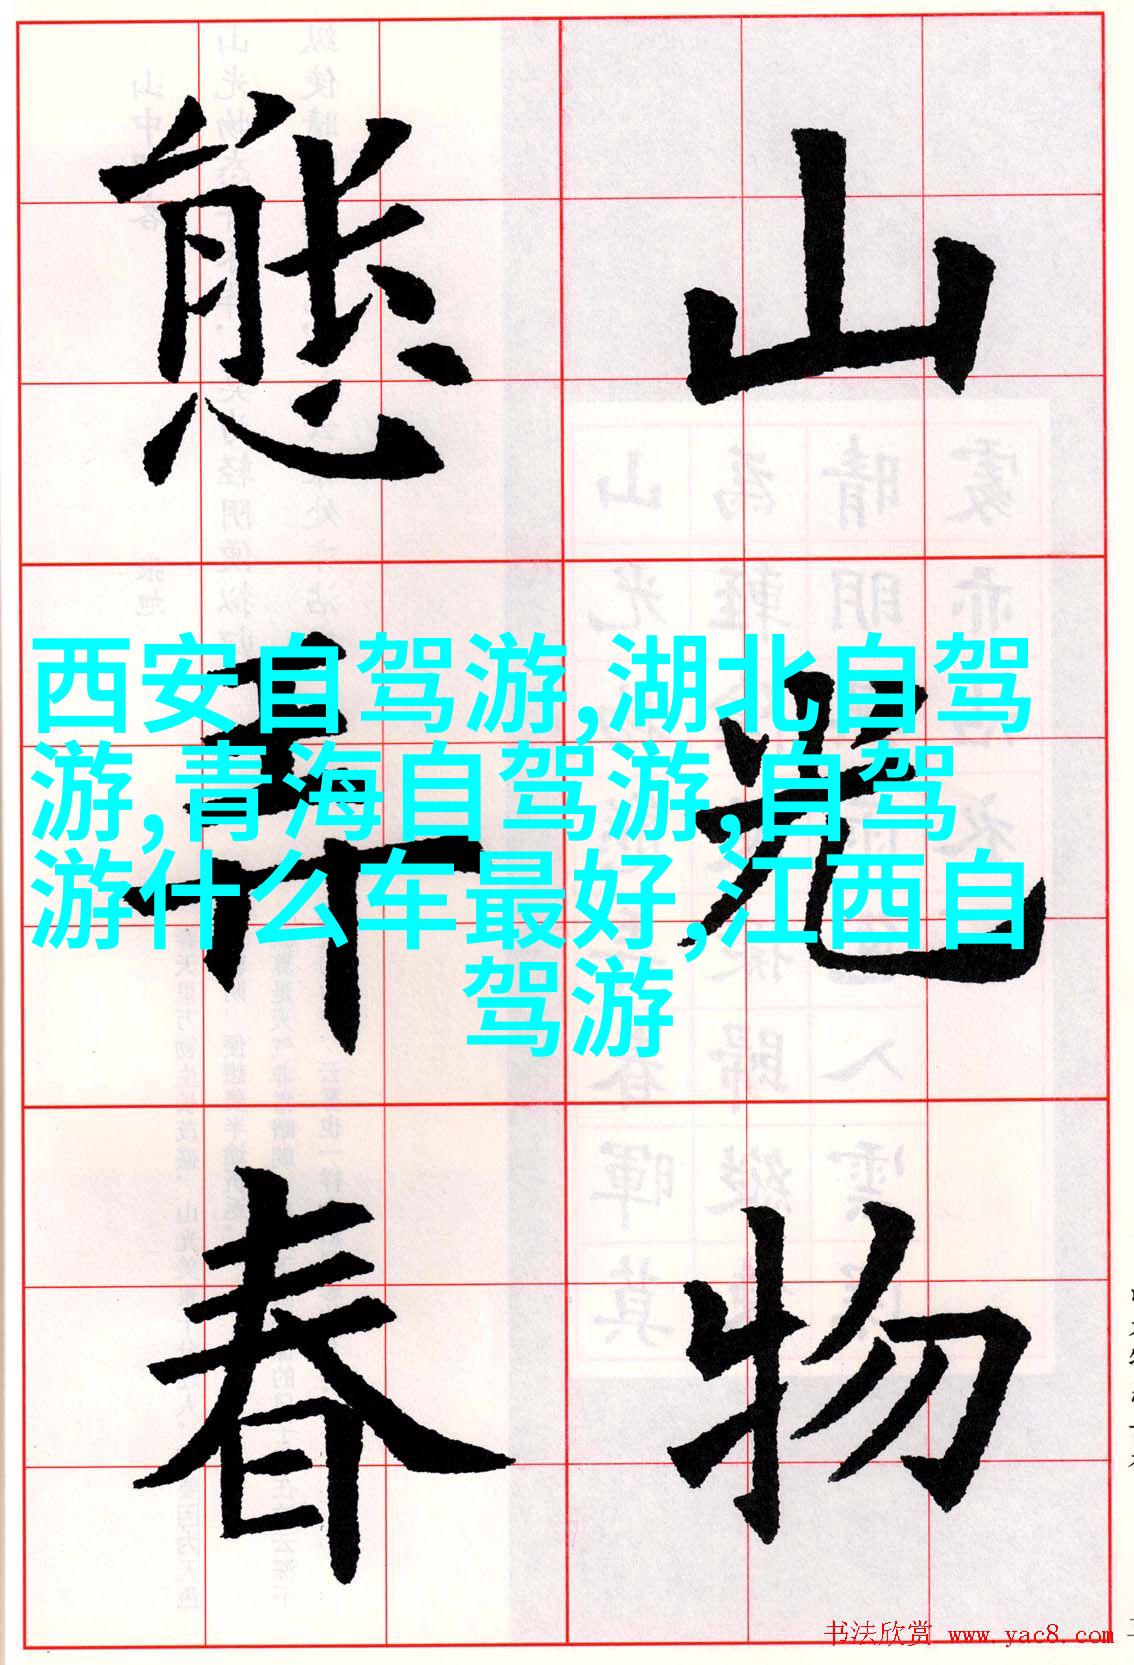 山光物
態弄春
西安自驾游,湖北自驾
游,青海自驾游,自驾
游什么车最好,江西自
驾游
书法欣赏 www.yac8.com